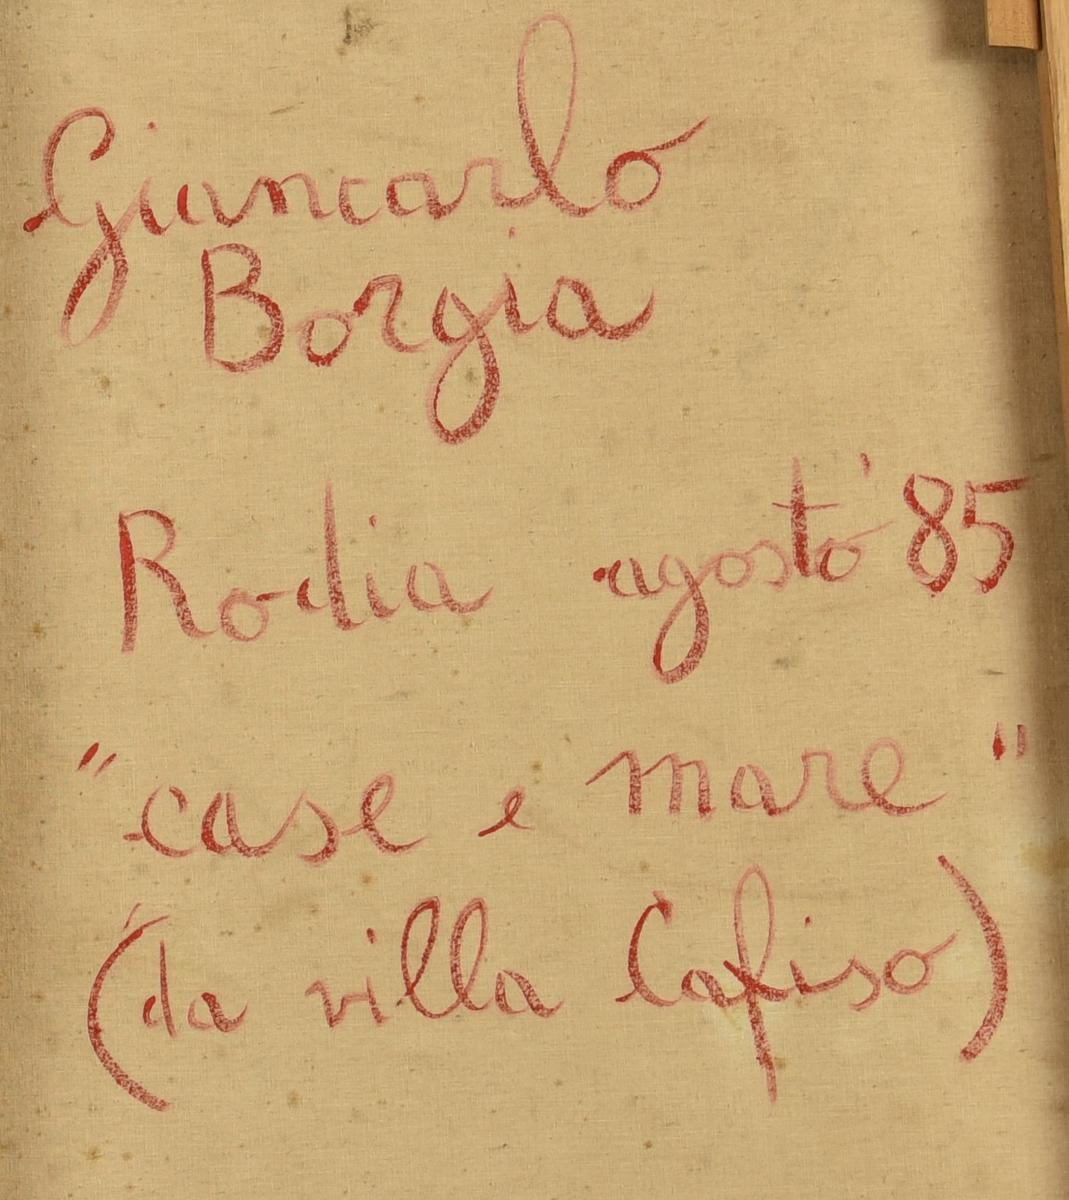 Giancarlo
Borgia
Rodia agosto '85
"case e mare"
(da villa Cafiso)